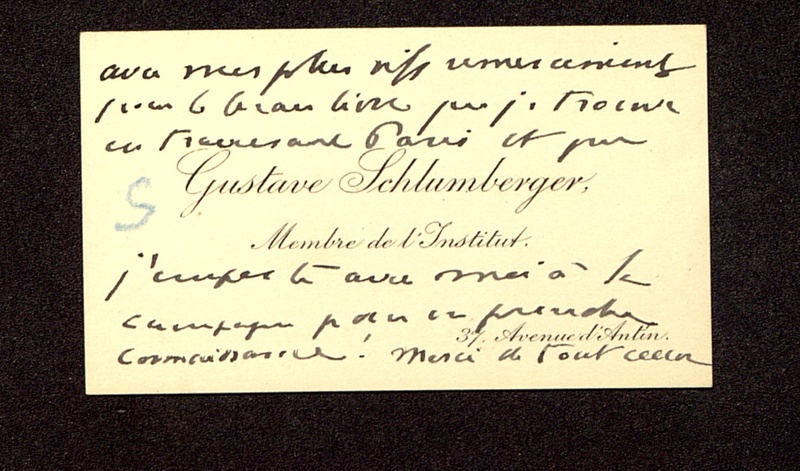 avec mes plus vifs remerciements
pour le beau livre que je trouve
en traversant Paris et que
Gustave Schlumberger,
S
Membre de l'Institut.
j'emporte avec moi à la
campagne pour en prendre
37, Avenue d'Antin.
connaissance! Merci de tout coeur